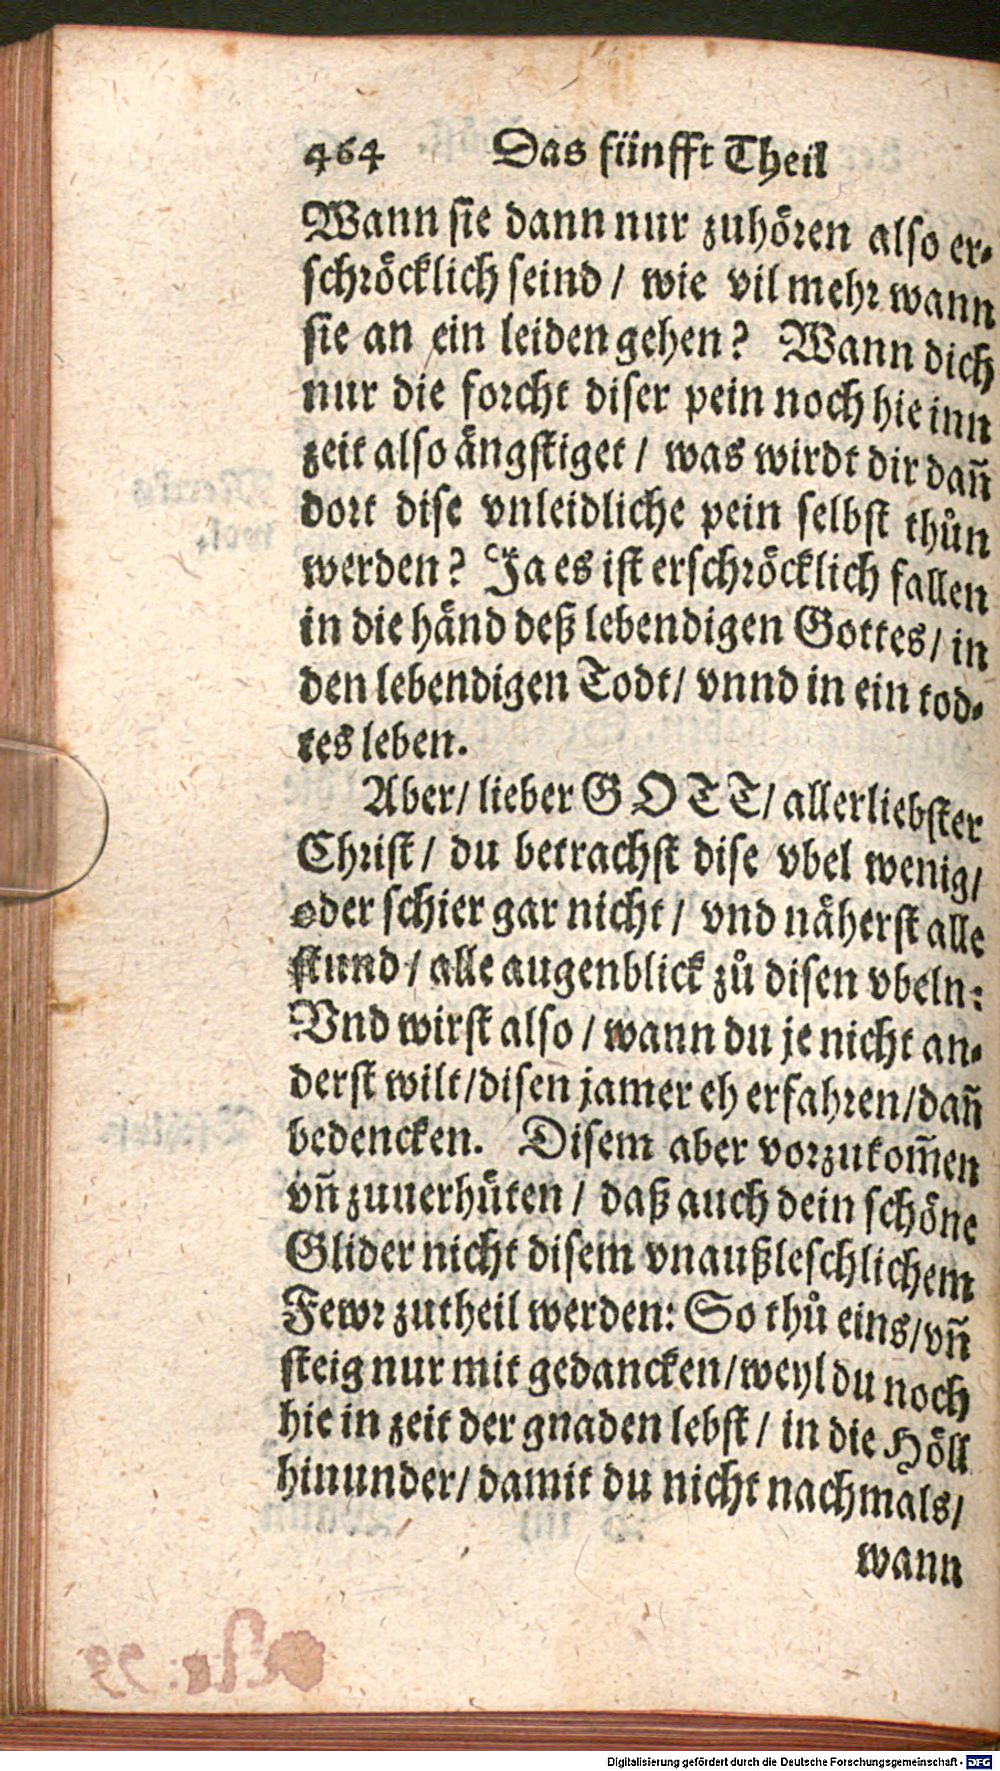 464 Das fünfft Theil
Wann sie dann nur zuhören also er-
schröcklich seind / wie vil mehr wann
sie an ein leiden gehen? Wann dich
nur die forcht diser pein noch hie inn
zeit also ängstiget / was wirdt dir dañ
dort dise vnleidliche pein selbst thůn
werden? Ja es ist erschröcklich fallen
in die händ deß lebendigen Gottes / in
den lebendigen Todt / vnnd in ein tod-
tes leben.
Aber / lieber GOTT / allerliebster
Christ / du betrachst dise vbel wenig /
oder schier gar nicht / vnd näherst alle
stund / alle augenblick zů disen vbeln:
Vnd wirst also / wann du je nicht an-
derst wilt / disen jamer eh erfahren / dañ
bedencken. Disem aber vorzukom̃en
vñ zuuerhüten / daß auch dein schöne
Glider nicht disem vnaußleschlichem
Fewr zutheil werden: So thů eins / vñ
steig nur mit gedancken / weyl du noch
hie in zeit der gnaden lebst / in die Höll
hinunder / damit du nicht nachmals /
wann
Digitalisierung gefördert durch die Deutsche Forschungsgemeinschaft - DFG